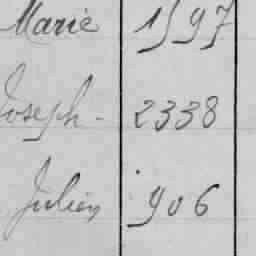 Marie 1597
Joseph - 2338
Julien 906